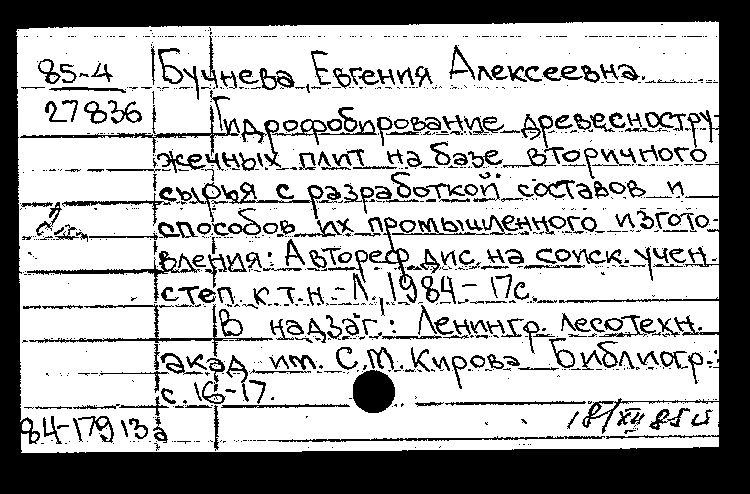 85-4
27836
Бучнева, Евгения Алексеевна.
Гидрофобирование древесностру-
жечных плит на базе вторичного
сырья с разработкой составов и
способов их промышленного изгото-
вления: Автореф. дис. на соиск. учен.
степ. к.т.н. - Л., 1984 - 17с.
В надзаг.: Ленингр. лесотехн.
акад. им. С.М. Кирова Библиогр.:
с. 16-17.
84-17913а
18/XII 85